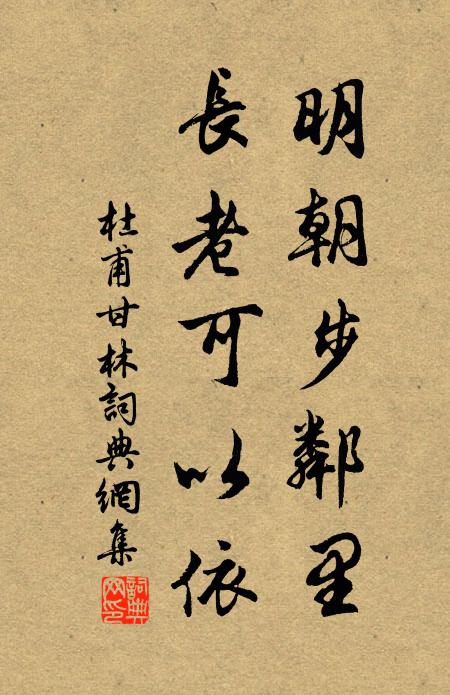 明朝步鄰里
長老可以依
杜甫甘林詞典網集
詞典网印